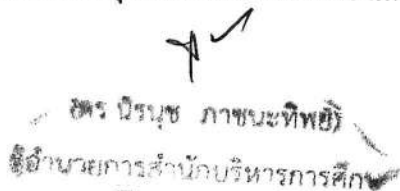 นิรนุช ภาชนะทิพย์)
ผู้อำนวยการสำนักบริหารการศึกษ